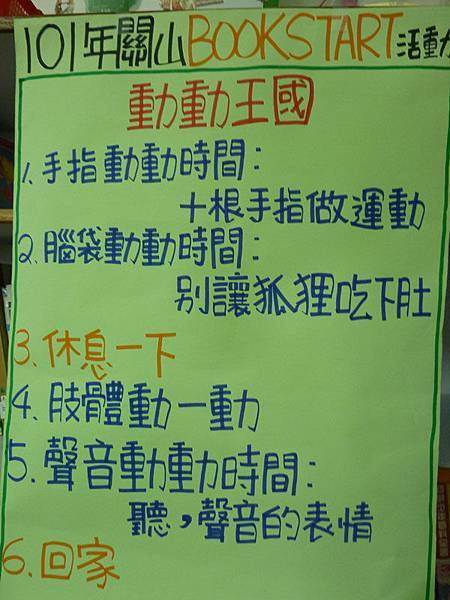 101年關山BOOKSTART活動
動動動王國
1.手指動動時間:
十根手指做運動
2.腦袋動動時間:
別讓狐狸吃下肚
3.休息一下
4.肢體動一動
5.聲音動動時間:
聽,聲音的表情
6.回家